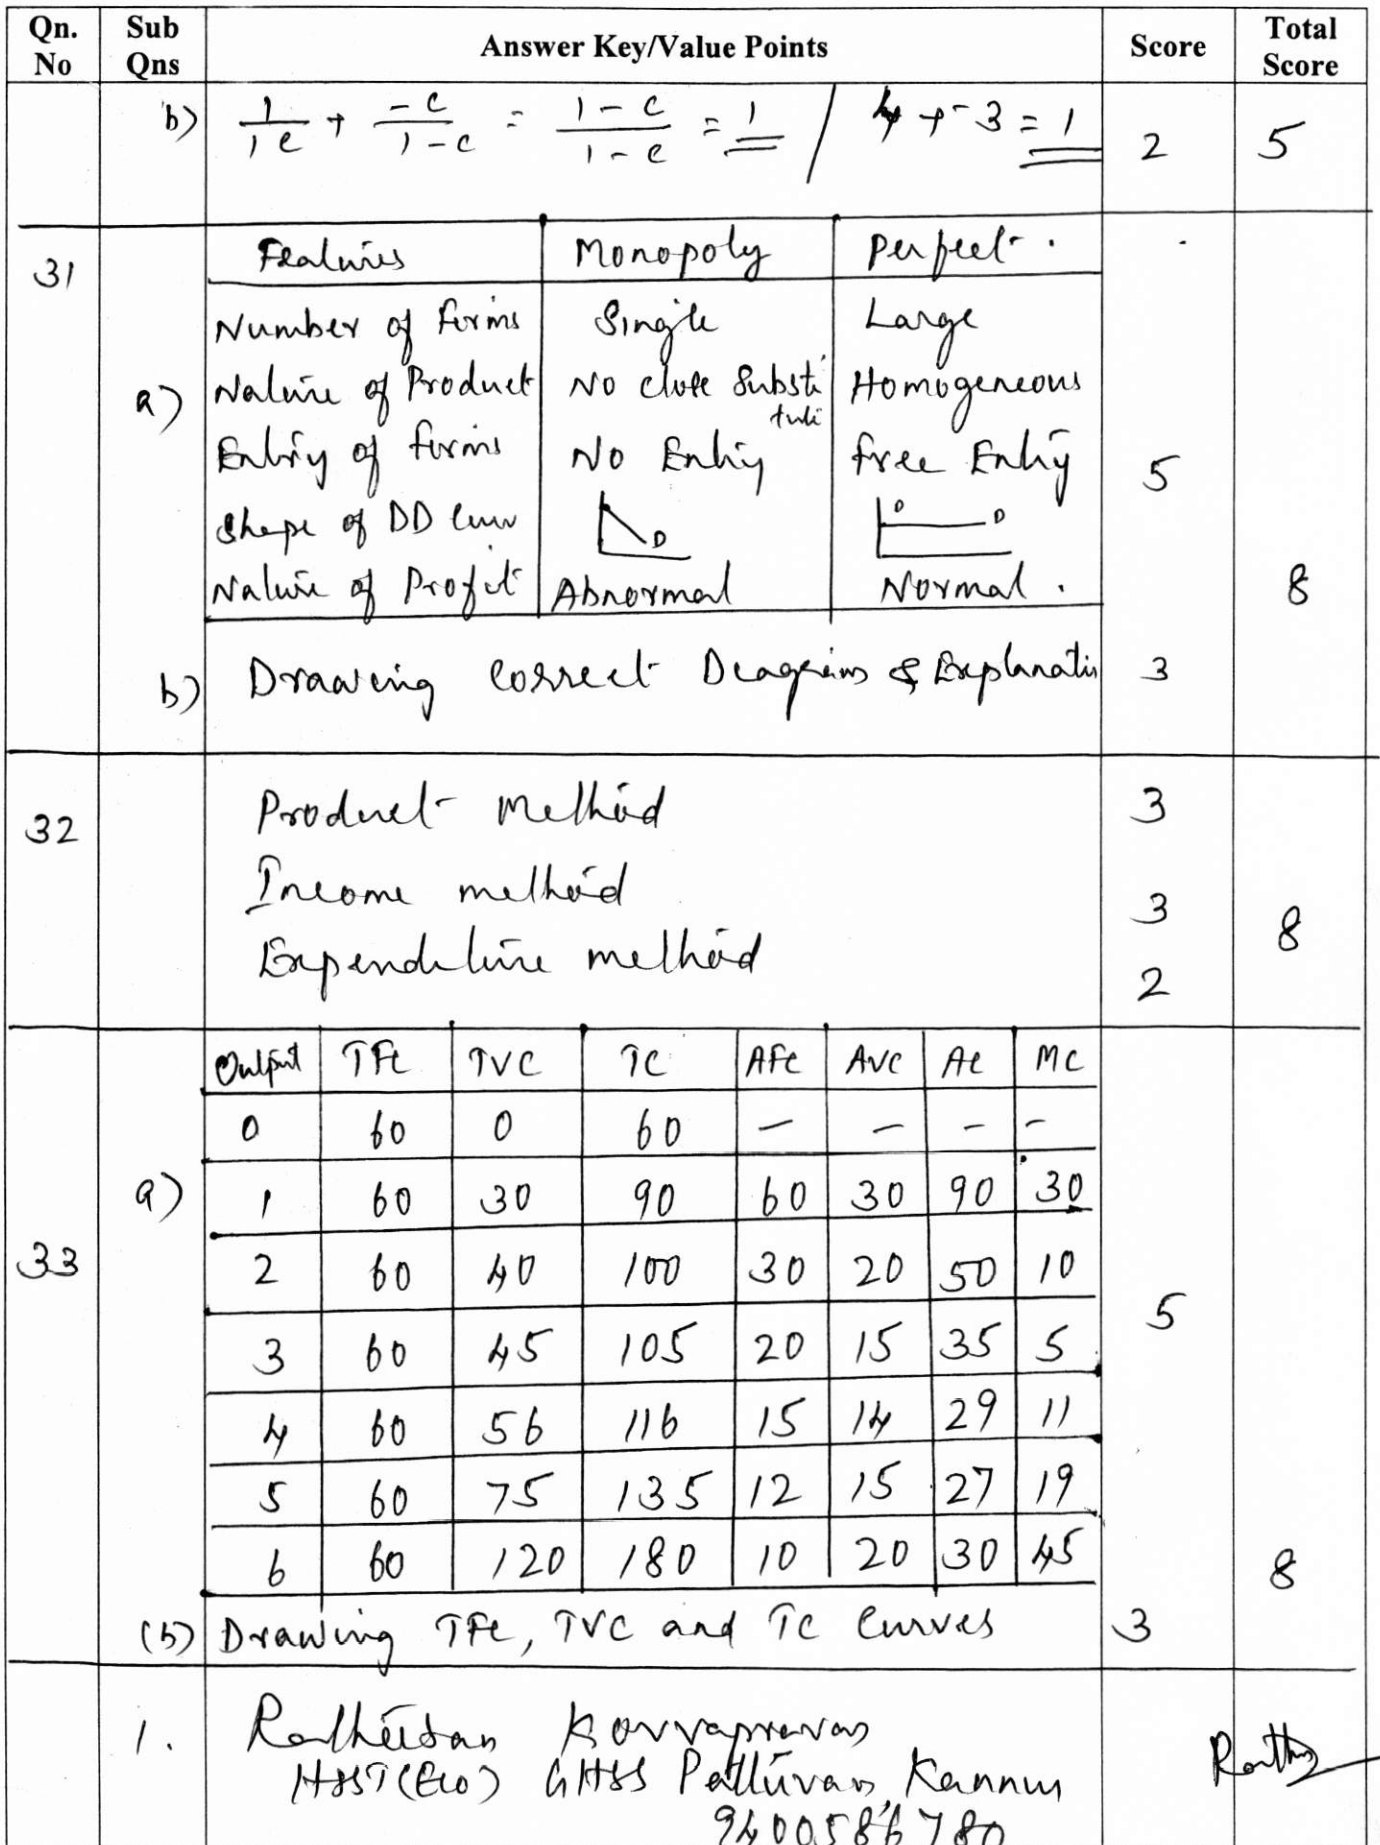 Qn. No | Sub Qns | Answer Key/Value Points | Score | Total Score
b) 1/1c + -c/1-c = 1-c/1-c = 1 / 4 + -3 = 1 | 2 | 5
31 | Features | Monopoly | Perfect.
Number of firms | Single | Large
a) Nature of Product | No close Substitute | Homogeneous
Entry of firms | No Entry | free Entry | 5
Shape of DD Curv | D | D D
Nature of Profit | Abnormal | Normal. | 8
b) Drawing correct Diagrams & Explanation | 3
32 | Product Method | 3
Income method | 3 | 8
Expenditure method | 2
Output | TFC | TVC | TC | AFC | AVC | AC | MC
0 | 60 | 0 | 60 | – | – | – | –
a) 1 | 60 | 30 | 90 | 60 | 30 | 90 | 30
33 | 2 | 60 | 40 | 100 | 30 | 20 | 50 | 10
3 | 60 | 45 | 105 | 20 | 15 | 35 | 5 | 5
4 | 60 | 56 | 116 | 15 | 14 | 29 | 11
5 | 60 | 75 | 135 | 12 | 15 | 27 | 19
6 | 60 | 120 | 180 | 10 | 20 | 30 | 45 | 8
(b) Drawing TFC, TVC and TC Curves | 3
1.
HSST(Eco) GHSS Kannur
9400586780